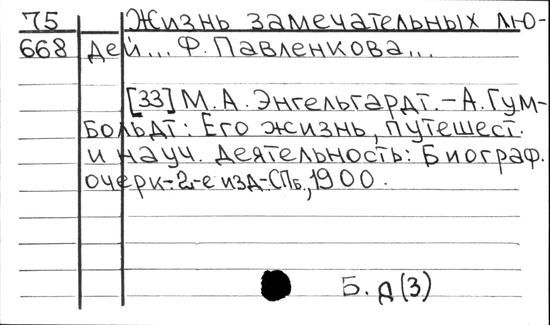 75 Жизнь замечательных лю-
668 дей... Ф. Павленкова...
[33] М.А. Энгельгардт.-А.Гум-
больдт: Его жизнь, путешест.
и науч. деятельность: Биограф.
очерк.-2-е изд-СПб, 1900.
Б. д (3)